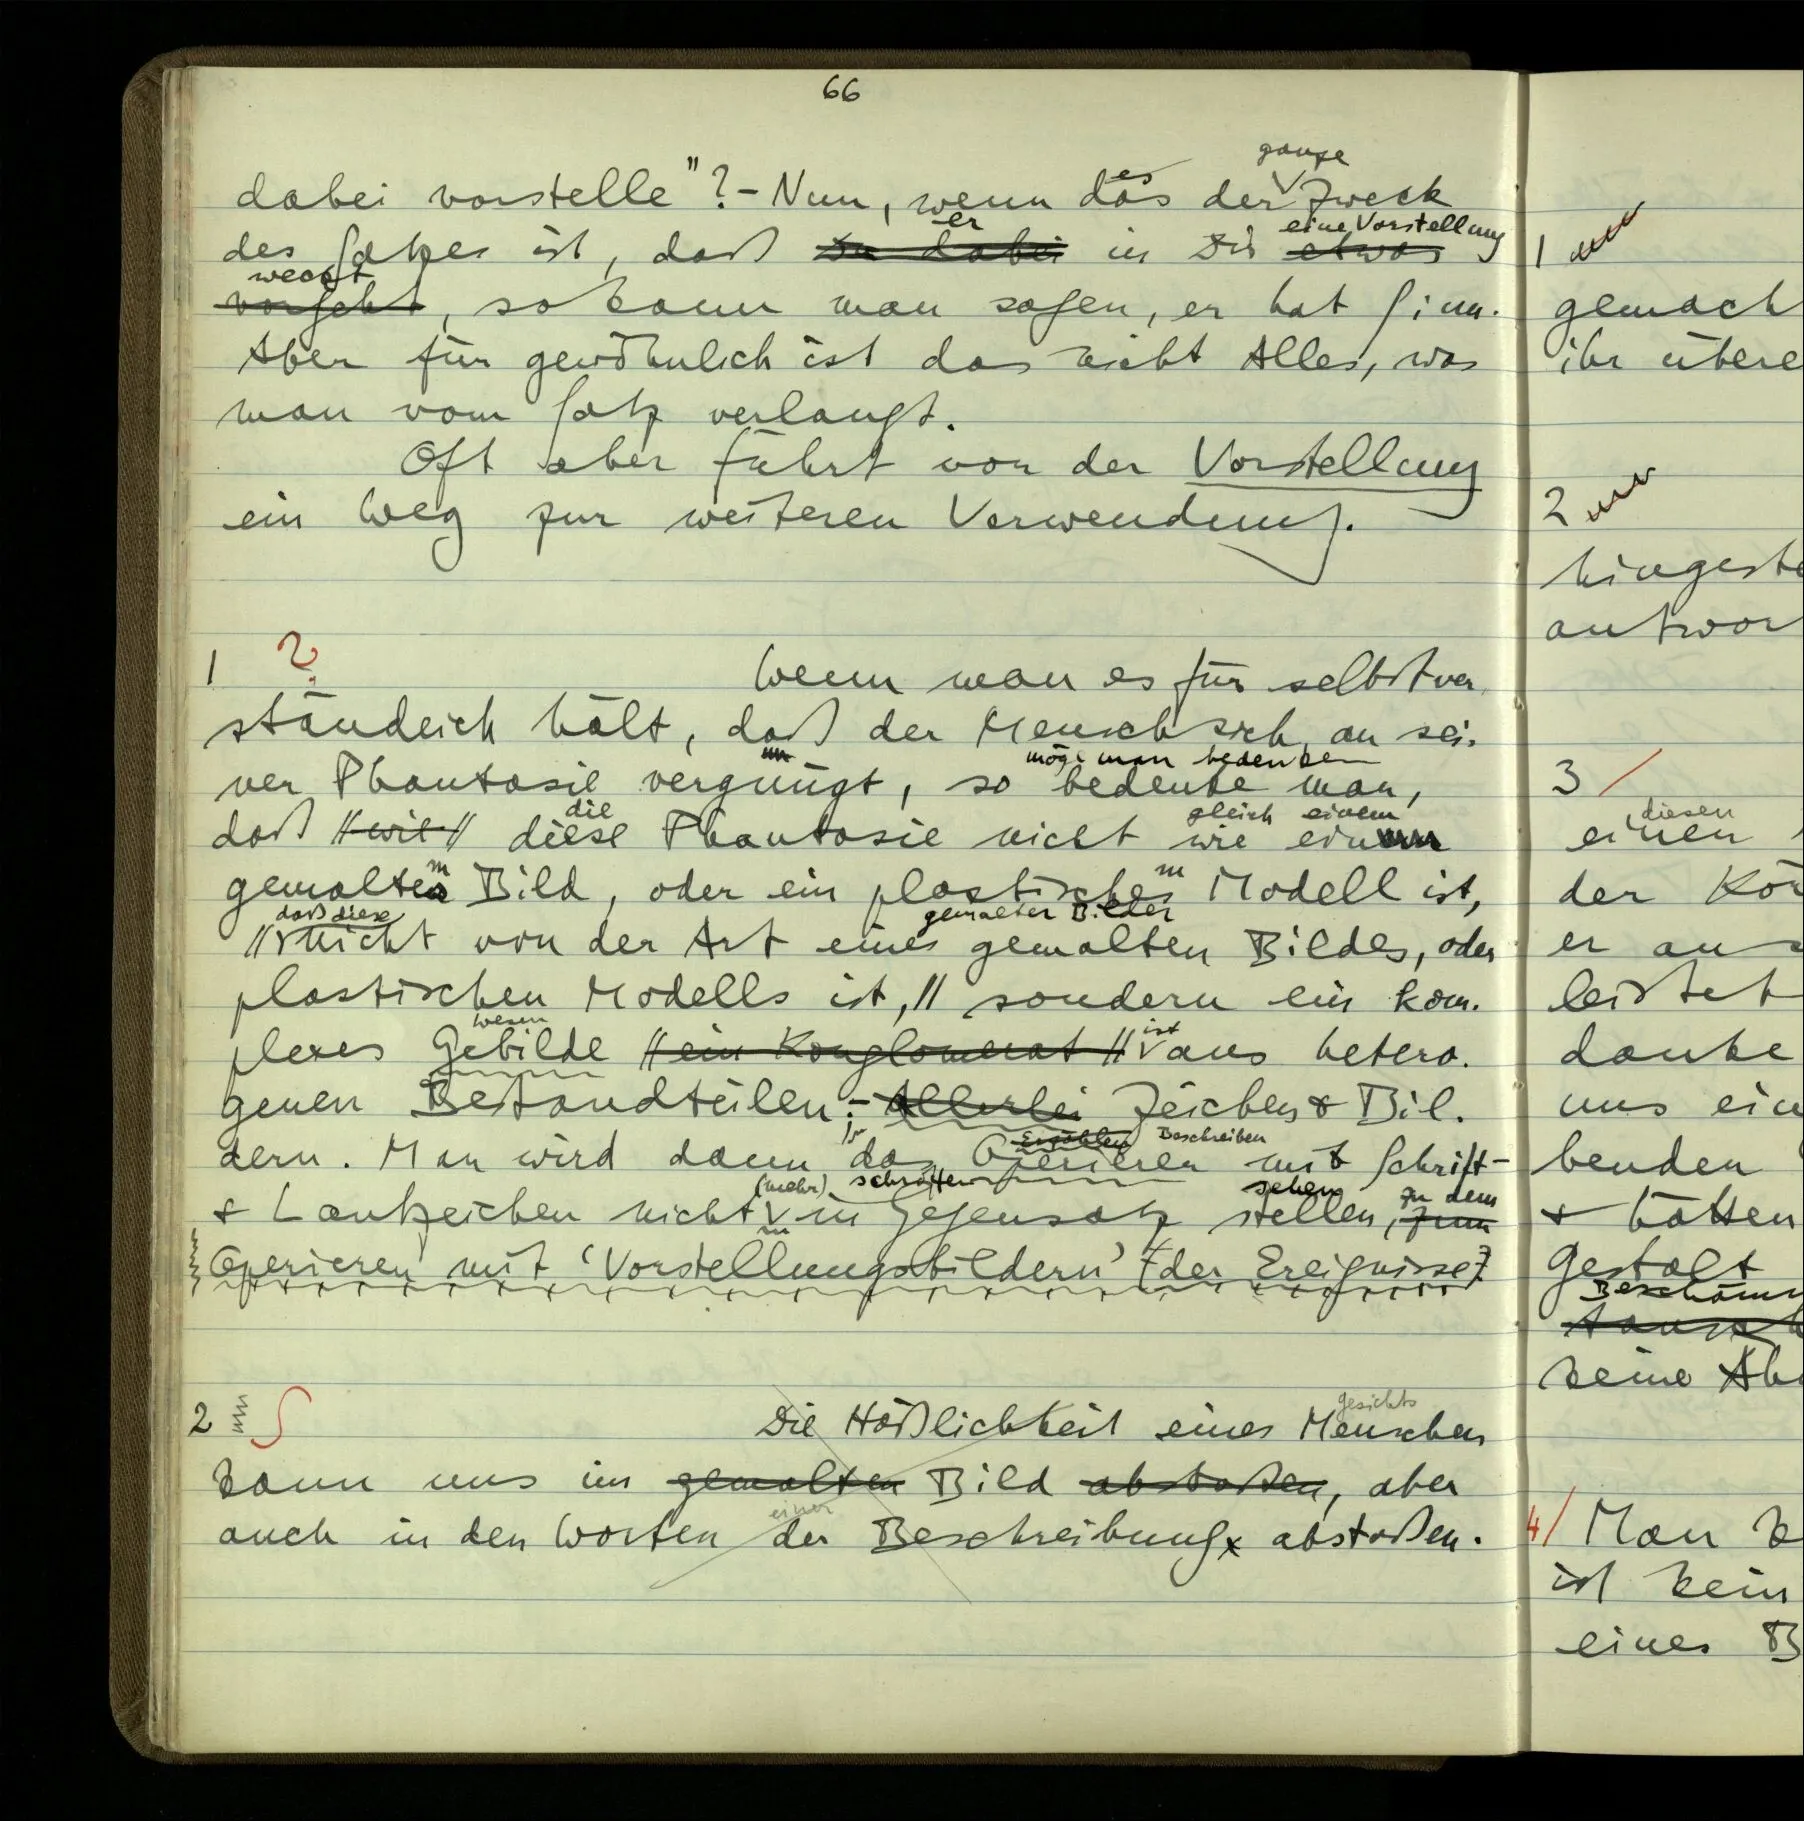 66
ganze
dabei vorstelle"? – Nun, wenn das der Zweck
es
er
eine Vorstellung
des Satzes ist, daß Du dabei in Dir etwas
weckt
vorgeht, so kann man sagen, er hat Sinn.
Aber für gewöhnlich ist das nicht Alles, was
man vom Satz verlangt.
Oft aber führt von der Vorstellung
ein Weg zur weiteren Verwendung.
1 ? Wenn man es für selbstver
ständlich hält, daß der Mensch sich an sei-
möge man bedenken
ner Phantasie vergnügt, so bedenke man,
die
gleich einem
daß // wie // diese Phantasie nicht wie ein
m
m
gemaltes Bild, oder ein plastisches Modell ist,
daß diese
gemalter Bilder
// nicht von der Art eines gemalten Bildes, oder
plastischen Modells ist, // sondern ein kom-
wesen
ist
plexes Gebilde // ein Konglomerat // aus hetero-
genen Bestandteilen: – Allerlei Zeichen & Bil-
Erzählen Beschreiben
dern. Man wird dann das Operieren mit Schrift-
(mehr) schroffen
sehen
zu dem
& Lautzeichen nicht in Gegensatz stellen, zum
Operieren mit ‘Vorstellungsbildern’ der Ereignisse
2 S Die Häßlichkeit eines Menschen
gesichts
kann uns im gemalten Bild abstoßen, aber
einer
auch in den Worten der Beschreibung abstoßen.
1
gemach
ihr übere
2
hingeste
antwor
3 /
diesen
einen
der Kör
er an
leistet
danke
uns ein
benden
& hätten
Gestalt
keine
4/ Man k
ist kein
eines B